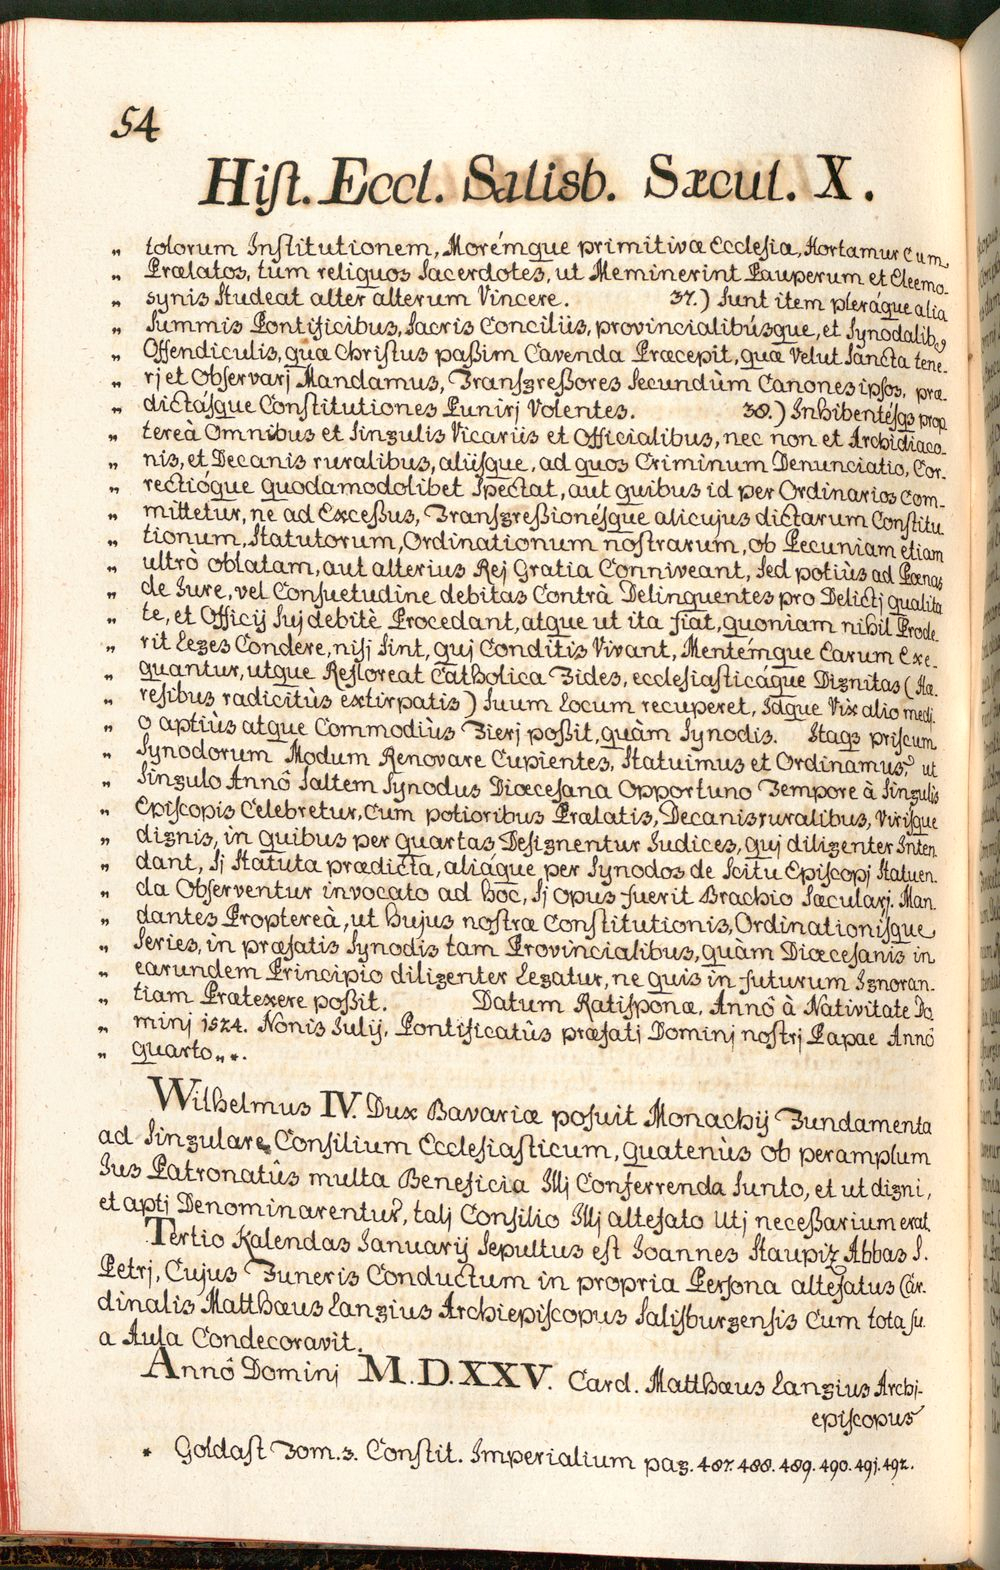 54
Hist. Eccl. Salisb. Sæcul. X.
„ tolorum Institutionem, Morémque primitivæ Ecclesiæ, Hortamur Cum
„ Prælatos, tum reliquos Sacerdotes, ut Meminerint Pauperum et Eleemo-
„ synis Studeat alter alterum Vincere. 37.) Sunt item pleráque alia
„ Summis Pontificibus, Sacris Conciliis, provincialibúsque, et Synodalibq
„ Offendiculis, quæ Christus paßim Cavenda Præcepit, quæ Velut Sancta tene-
„ rj et Observarj Mandamus, Transgreßores Secundùm Canones ipsos, præ-
„ dictásque Constitutiones Punirj Volentes. 38.) Inhibentésqs prop
„ tereà Omnibus et Singulis Vicariis et Officialibus, nec non et Archidiaco-
„ nis, et Decanis ruralibus, aliisque, ad quos Criminum Denunciatio, Cor-
„ rectióque quodamodolibet Spectat, aut quibus id per Ordinarios Com-
„ mittetur, ne ad Exceßus, Transgreßionésque alicujus dictarum Constitu
„ tionum, Statutorum, Ordinationum nostrarum, ob Pecuniam etiam
„ ultrò oblatam, aut alterius Rej Gratia Conniveant, Sed potiùs ad Pœnas
„ de Jure, vel Consuetudine debitas Contrà Delinquentes pro Delictj qualita
„ te, et Officij Suj debitè Procedant, atque ut ita fiat, quoniam nihil Prode-
„ rit Leges Condere, nisj Sint, quj Conditis Vivant, Mentémque Earum Exe-
„ quantur, utque Refloreat Catholica Fides, ecclesiasticáque Dignitas (Hæ-
„ resibus radicitùs extirpatis) Suum Locum recuperet, Idque Vix alio medj-
„ o aptiùs atque Commodiùs Fierj poßit, quàm Synodis. Itaqs priscum
„ Synodorum Modum Renovare Cupientes, Statuimus et Ordinamus, ut
„ Singulo Annô Saltem Synodus Diœcesana Opportuno Tempore à Singulis
„ Episcopis Celebretur, Cum potioribus Prælatis, Decanis ruralibus, Virisque
„ dignis, in quibus per quartas Designentur Judices, quj diligenter Inten-
„ dant, Sj Statuta prædicta, aliáque per Synodos de Scitu Episcopj Statuen-
„ da Observentur invocato ad hoc, Sj opus fuerit Brachio Sæcularj. Man-
„ dantes Proptereà, ut hujus nostræ Constitutionis, Ordinationisque
„ Series, in præfatis Synodis tam Provincialibus, quàm Diœcesanis in
„ earundem Principio diligenter Legatur, ne quis in futurum Ignoran-
„ tiam Prætexere poßit. Datum Ratisponæ, Annô à Nativitate Do
„ minj 1524. Nonis Julij, Pontificatûs præfatj Dominj nostrj Papae Annô
„ quarto„*.
Wilhelmus IV. Dux Bavariæ posuit Monachij Fundamenta
ad Singulare Consilium Ecclesiasticum, quatenùs ob peramplum
Jus Patronatûs multa Beneficia Illj Conferrenda Sunto, et ut digni,
et aptj Denominarentur, talj Consilio Illj altefato Utj neceßarium erat.
Tertio Kalendas Januarij Sepultus est Joannes Staupiz Abbas S.
Petrj, Cujus Funeris Conductum in propria Persona altefatus Car-
dinalis Matthæus Langius Archiepiscopus Salisburgensis Cum tota su-
a Aula Condecoravit.
Annô Dominj M.D.XXV. Card. Matthæus Langius Archj-
episcopus
* Goldast Tom. 3. Constit. Imperialium pag. 487. 488. 489. 490. 491. 492.